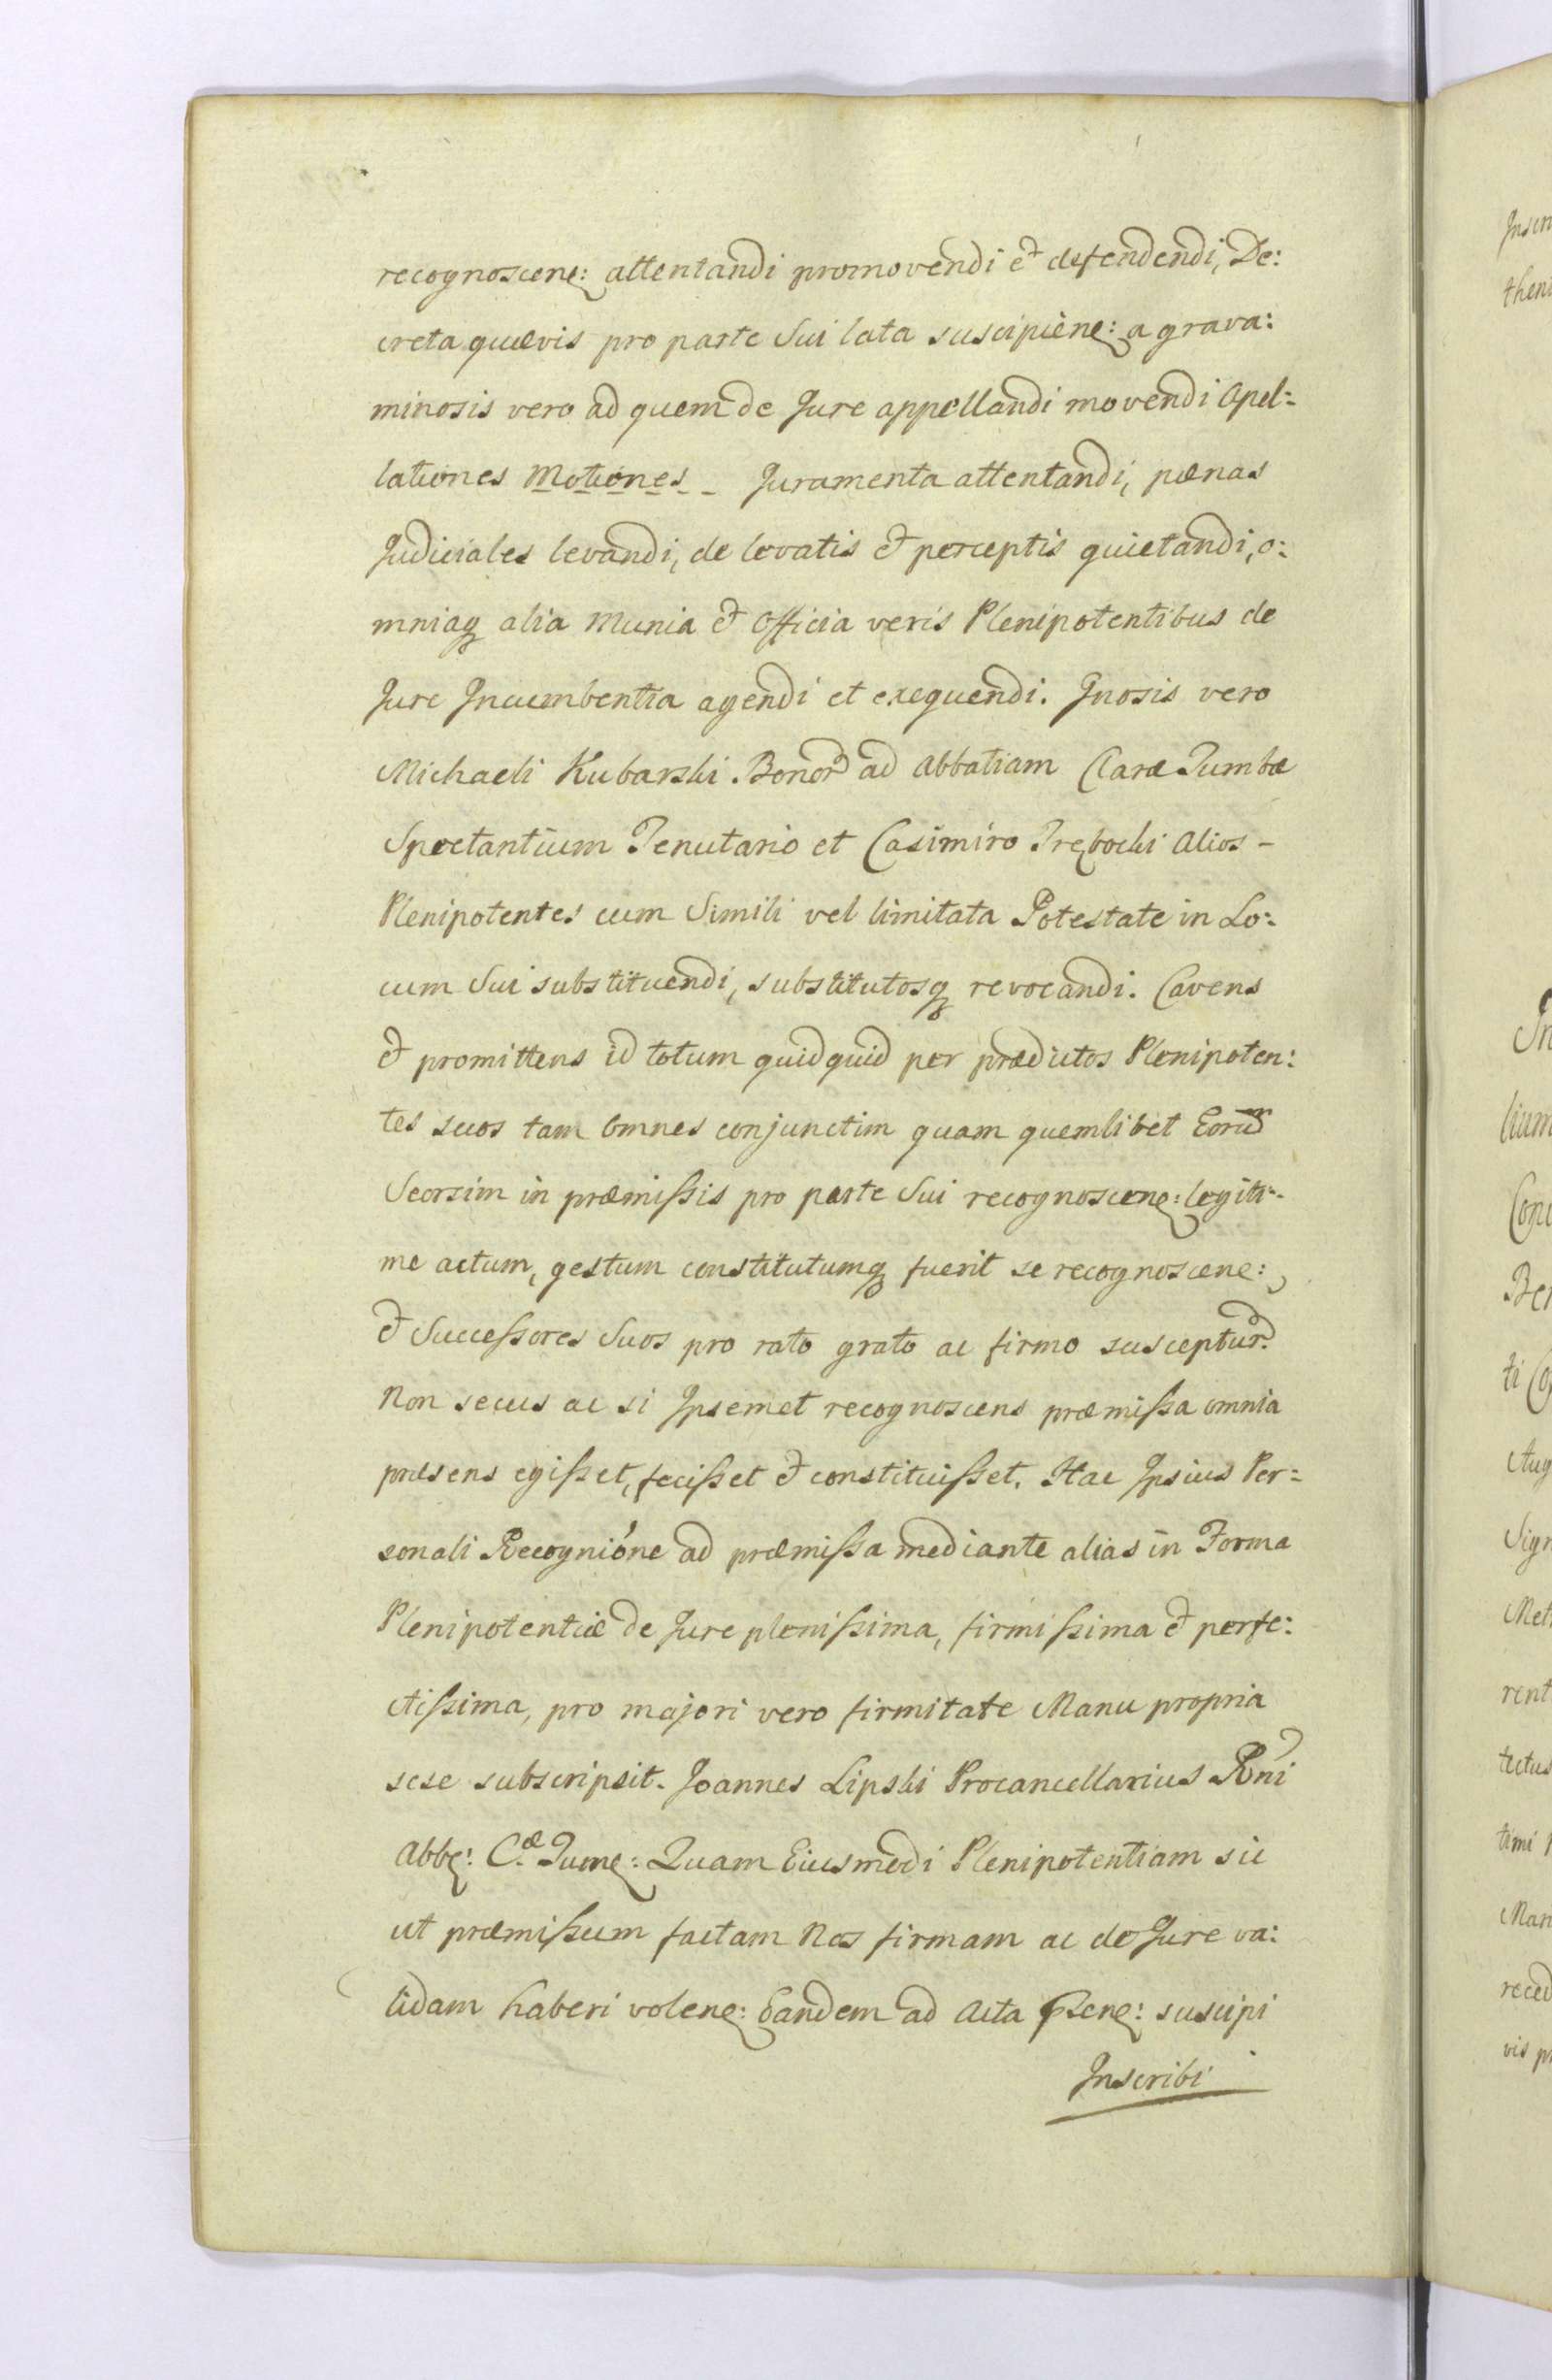 recognoscenẽ: attentandi promovendi et defendendi, De:
creta quævis pro parte Sui lata suscipienẽ: a grava:
minosis vero ad quem de Jure appellandi movendi Apel:
lationes Motiones _ Juramenta attentandi, pænas
Judiciales levandi, de levatis et perceptis quietandi, o:
mniaq alia Munia et Officia veris Plenipotentibus de
Jure Incumbentia agendi et exequendi. Gnosis vero
Michaeli Kubarski Bonor ad Abbatiam Claræ Tumbæ
Spectantium Tenutario et Casimiro Trębecki Alios -
Plenipotentes cum Simili vel limitata Potestate in Lo:
cum Sui substituendi, substitutosq revocandi. Cavens
et promittens id totum quidquid per prædictos Plenipoten:
tes suos tam Omnes conjunctim quam quemlibet Eorum
Seorsim in præmissis pro parte Sui recognoscenẽ: legiti:
me actum, gestum constitutumq fuerit se recognoscene:,
et Successores Suos pro rato grato ac firmo susceptur.
Non secus ac si Ipsemet recognoscens præmissa omnia
præsens egisset, fecisset et constituisset. Hac Ipsius Per:
sonali Recognióne ad præmissa mediante alias in Forma
Plenipotentiæ de Jure plenissima, firmissima et perfe:
ctissima, pro majori vero firmitate Manu propria
sese subscripsit. Joannes Lipski Procancellarius Rni
Abbẽ: Cæ. Tumẽ: Quam Eiusmodi Plenipotentiam sic
ut præmissum factam Nos firmam ac de Jure va:
lidam haberi volenẽ: Eandem ad Acta Psenẽ: suscipi
Inscribi